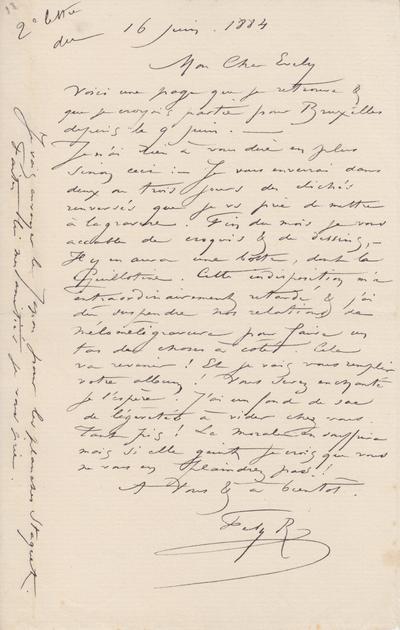 2e lettre
du 16 Juin. 1884
Mon Cher Evely
Voici une page que je retrouve &
que je croyais partie pour Bruxelles
depuis le 9 juin. —
Je n'ai rien à vous dire en plus
sinon ceci : — Je vous enverrai dans
deux ou trois jours des clichés
renversés que je vs prie de mettre
à la gravure. Fin du mois je vous
accable de croquis & de dessins, —
Il y en aura une hotte, dont la
Guillotine. Cette indisposition m'a
extraordinairement retardé & j'ai
dû suspendre nos relations de
pour faire un
tas de choses à côté. Cela
va revenir ! Et je vais vous remplir
votre album ! Vous serez enchanté
je l'espère. J'ai un fond de sac
de légèretés à vider chez vous.
Tant pis ! La morale en souffrira
mais si elle geint je crois que vous
ne vous en plaindrez pas !
A Vous & à bientôt.
Fély R
Je vais envoyer le Japon pour les planches Staquet.
Faites lui mes amitiés je vous prie.